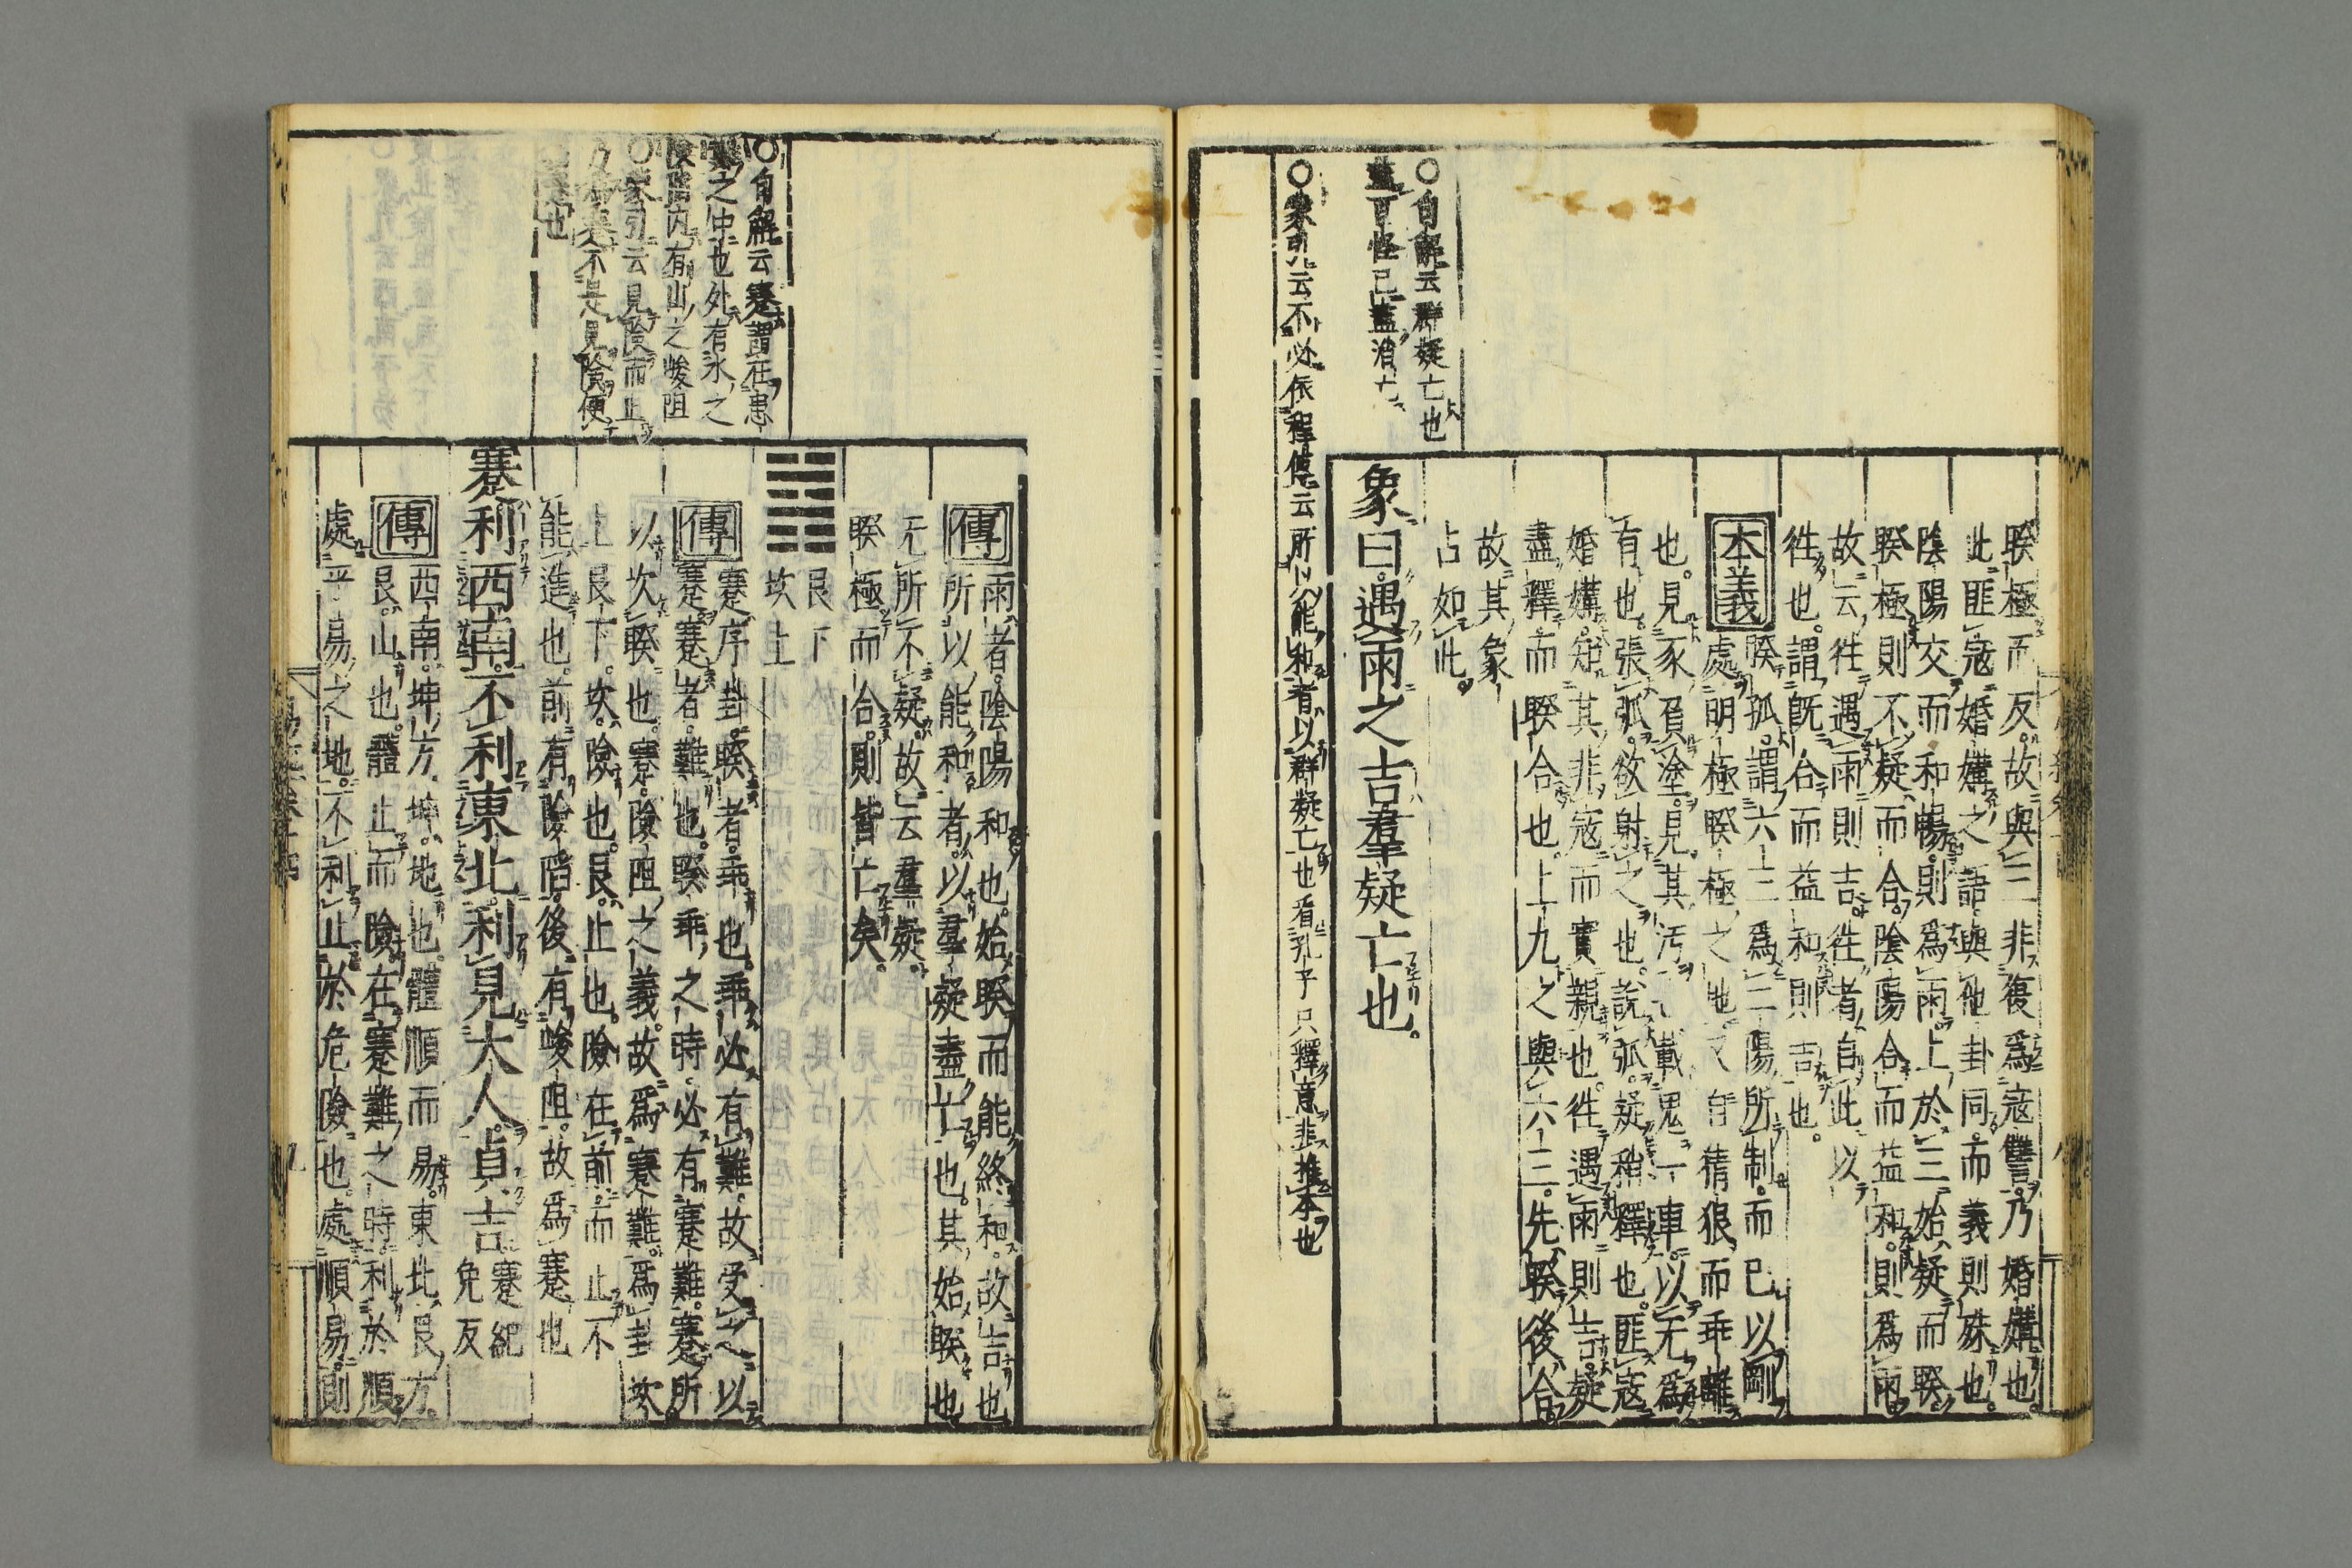 睽極而反。故與三非復爲寇讐。乃婚媾也。
此匪寇婚媾之語。與他卦同。而義則殊也。
陰陽交而和暢。則爲雨。上於三始疑而睽。
睽極則不疑而合。陰陽合而益和。則爲雨。
故云徃遇雨則吉。徃者自此以
徃也。謂既合而益和則吉也。
本義
睽孤。謂六三爲二陽所制。而已以剛
處明極睽極之地。又自猜狠而乖離
也。見豕負塗。見其汚載鬼一車。以无爲
有也。張弧。欲射之也。說弧。疑稍釋也。匪寇
婚媾。知其非寇而實親也。徃遇雨則吉。疑
盡釋而睽合也上九之與六三。先睽後合。
故其象
占如此。
象曰。遇雨之吉。羣疑亡也。
○自解云群疑亡也
盖可怪已盖消亡
○蒙引云不必依程傳云所以能和者以群疑亡也看孔子只釋意非推本也
傳
雨者。陰陽和也。始睽而能終和。故吉也
所以能和者。以羣疑盡亡也。其始睽也
无所不疑。故云羣疑。
睽極而合。則皆亡矣。
艮下
坎上
傳
蹇序卦。睽者。乖也。乖必有難。故受之以
蹇。蹇者。難也。睽乖之時。必有蹇難。蹇所
以次睽也。蹇。險阻之義。故爲蹇難。爲卦坎
上艮下。坎。險也。艮。止也。險在前。而止不
能進也。前有險陷。後有峻阻。故爲蹇也
蹇利西南。不利東北。利見大人。貞吉
蹇紀
免反
傳
西南。坤方。坤。地也。體順而易。東北。艮方。
艮。山也。體止而險。在蹇難之時。利於順
處平易之地。不利止於危險也。處順易。則
○自解云蹇謂在患
難之中也外有水之
陰陷内有山之峻阻
○蒙引云見險而止
乃爲蹇不是見險便